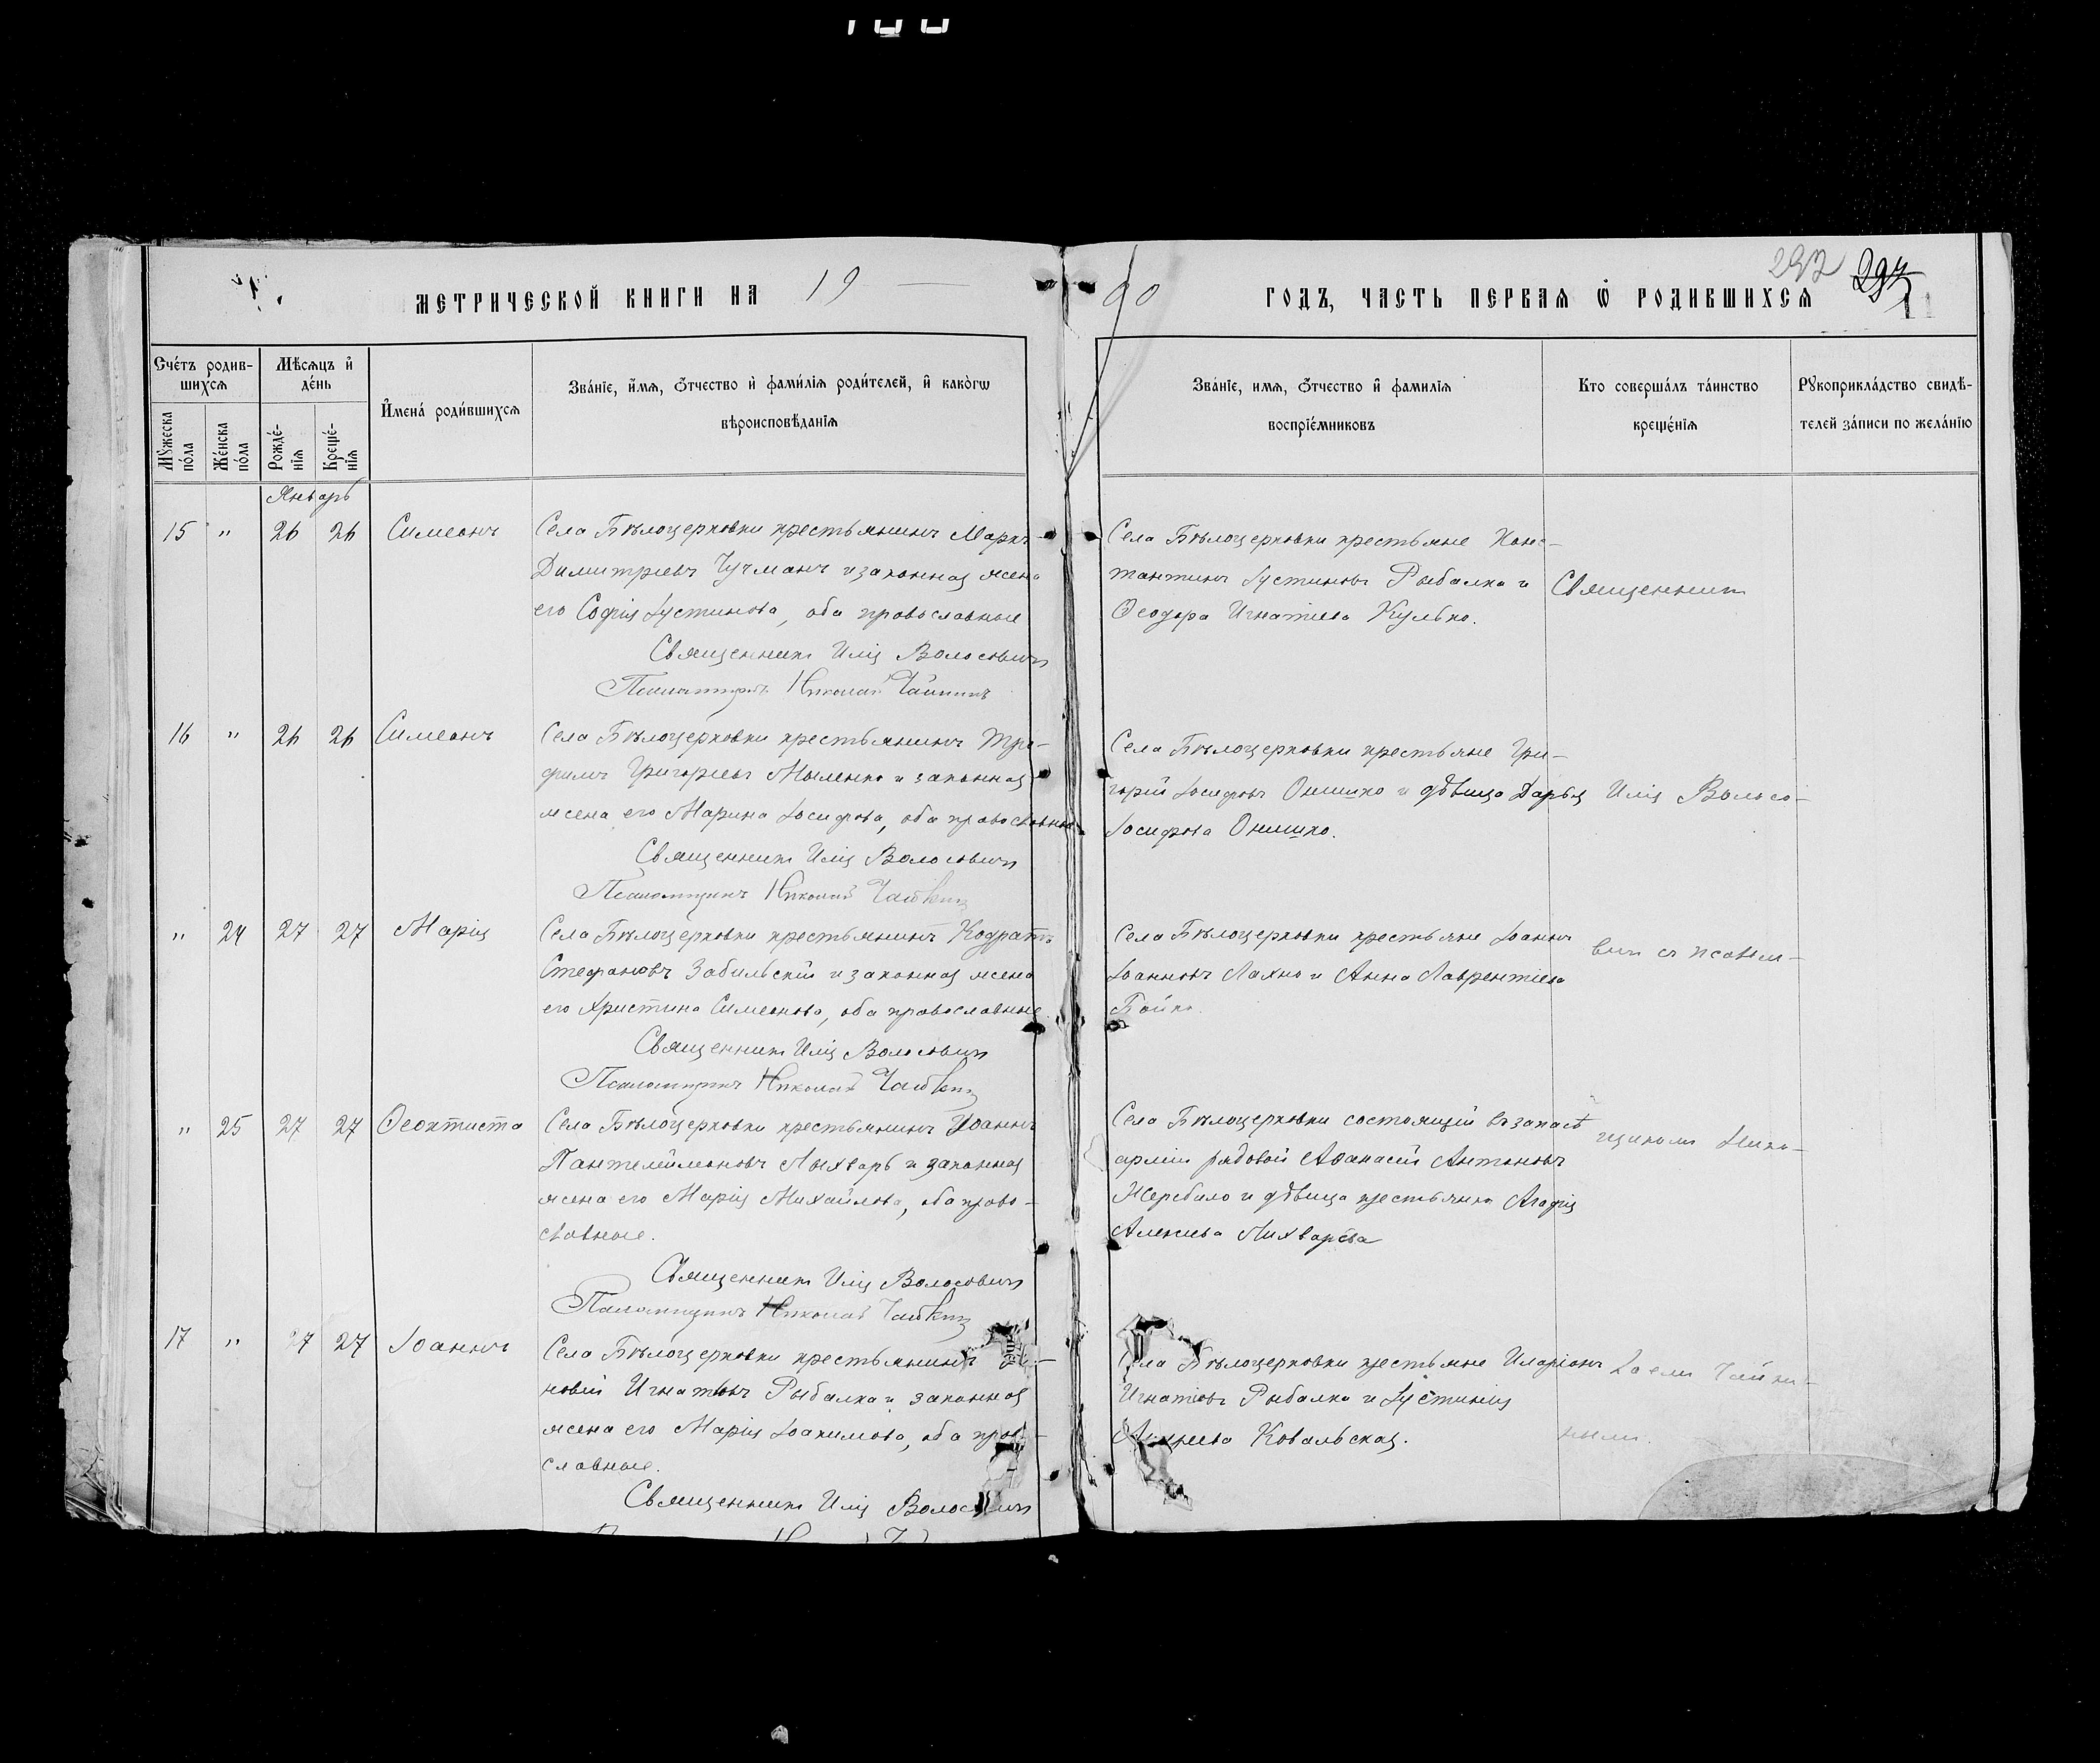 МЕТРИЧЕСКОЙ КНИГИ НА 19 —
00 ГОДЪ, ЧАСТЬ ПЕРВАЯ Ѡ РОДИВШИХСЯ
292 297
Счéтъ родив-
шихсѧ
Мѣсяцъ и҆
дéнь
Мꙋ́жеска
пóла
Жéнска
пóла
Рождé-
нїѧ
Крещé-
нїѧ
И҆мена́ роди́вшихсѧ
Зва́нїе, и҆́мѧ, ѻ҆́тчество и҆ фами́лїѧ роди́телей, и҆ какóгѡ
вѣроисповѣ́данїѧ
Зва́нїе, имѧ, ѻ҆́тчество и҆ фамилїѧ
воспрїе́мниковъ
Кто соверша́лъ та́инство
креще́нїѧ
Рꙋкоприкла́дство свидѣ́-
телей за́писи по жела́нїю
Январь
15 " 26 26 Симеонъ
Села Бѣлоцерковки крестьянинъ Маркъ
Димитріевъ Чучманъ и законная жена
его Софія Іустинова, оба православные
Священникъ Илія Волосовичъ
Псаломщикъ Николай Чайкинъ
Села Бѣлоцерковки крестьяне Конс-
тантинъ Іустиновъ Рыбалка и
Ѳеодора Игнатіева Кулько.
Священник
16 " 26 26 Симеонъ
Села Бѣлоцерковки крестьянинъ Тро-
фимъ Григоріевъ Мыленко и законная
жена его Марина Іосифова, оба православные
Священникъ Илія Волосовичъ
Псаломщикъ Николай Чайкинъ
Села Бѣлоцерковки крестьяне Гри-
горій Іосифовъ Онишко и дѣвица Дарья
Іосифова Онишко.
Илія Волосо-
" 24 27 27 Марія
Села Бѣлоцерковки крестьянинъ Кодратъ
Стефановъ Забильскій и законная жена
его Христина Симеонова, оба православные
Священникъ Илія Волосовичъ
Псаломщикъ Николай Чайкинъ
Села Бѣлоцерковки крестьяне Іоаннъ
Іоанновъ Лахно и Анна Лаврентіева
Бойко.
вичъ съ псалом-
" 25 27 27 Ѳеоктиста
Села Бѣлоцерковки крестьянинъ Іоаннъ
Пантелеймоновъ Лыхварь и законная
жена его Марія Михайлова, оба право-
славные.
Священникъ Илія Волосовичъ
Псаломщикъ Николай Чайкинъ
Села Бѣлоцерковки состоящій въ запасѣ
арміи рядовой Аѳанасій Антоновъ
Жеребило и дѣвица крестьянка Агафія
Алексіева Лихварева
щикомъ Нико-
17 " 27 27 Іоаннъ
Села Бѣлоцерковки крестьянинъ
новій Игнатіевъ Рыбалка и законная
жена его Марія Іоакимова, оба право-
славные.
Священникъ Илія Волосовичъ
Села Бѣлоцерковки крестьяне Иларіонъ
Игнатіевъ Рыбалка и Іустинія
Ковальская.
лаемъ Чайки-
нымъ.